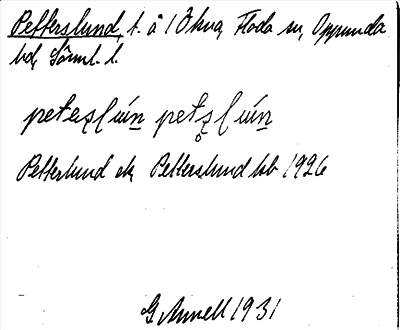 Petterslund, t. å 1 Ökna, Floda sn, Oppunda
hd, Sörml. l.
petazlún petzlún
Petterlund ek Petterslund kb 1926
G Annell 1931